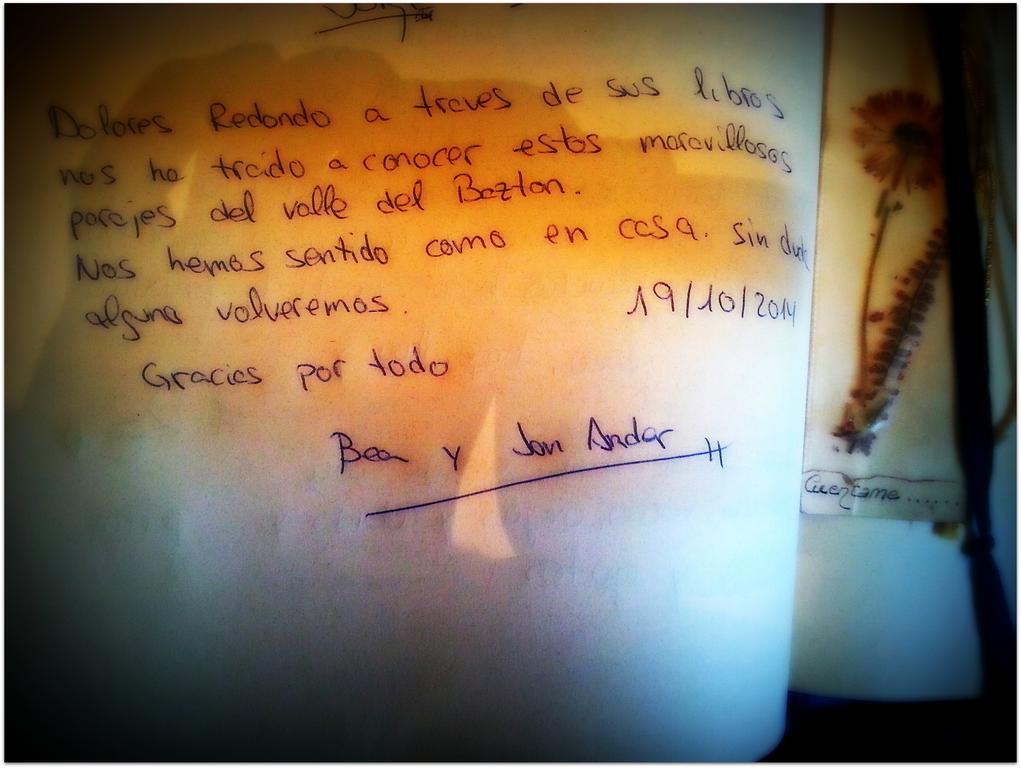 Dolores Redondo a traves de sus libros
nos ha traido a conocer estos maravillosos
parajes del valle del Baztan.
Nos hemos sentido como en casa. sin duda
alguna volveremos. 19/10/2014
Gracias por todo
Bea y Jon Ander
Cuentame......